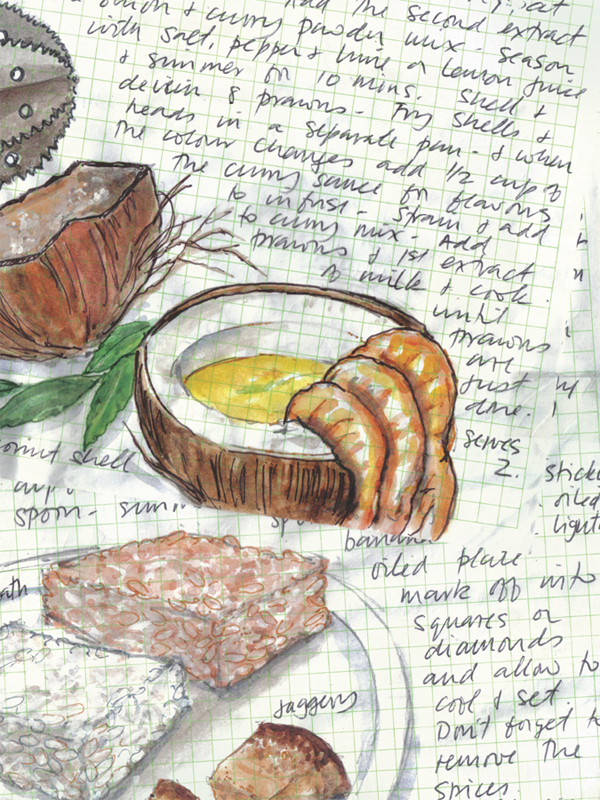 onion & curry powder mix. Season
add the second extract
with salt, pepper & lime or lemon juice
& simmer for 10 mins. Shell &
devein 8 prawns. Fry shells &
heads in a separate pan. & when
the colour changes add 1/2 cup of
the curry sauce for flavours
to infuse. Strain & add
to curry mix. Add
prawns & 1st extract
of milk & cook
until
prawns
are
just
done.
serves
2.
coconut shell
cup.
spoon.
sticks
oiled
light
banana
oiled plate
mark off into
squares or
diamonds
and allow to
cool & set.
Don't forget to
remove the
spices.
jaggery